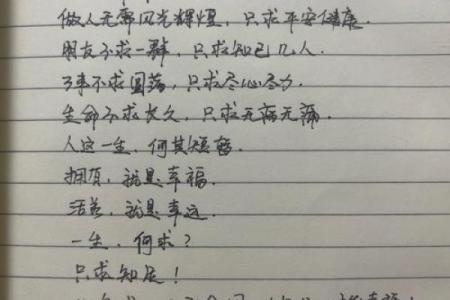 做人无需风光辉煌，只求平安健康．
朋友不求一群，只求知己几人．
了事不求圆满，只求尽心尽力．
生命不求长久，只求无病无痛．
人这一生，何其短暂．
拥有，就是幸福．
活着，就是幸运．
一生，何求？
只求知足！